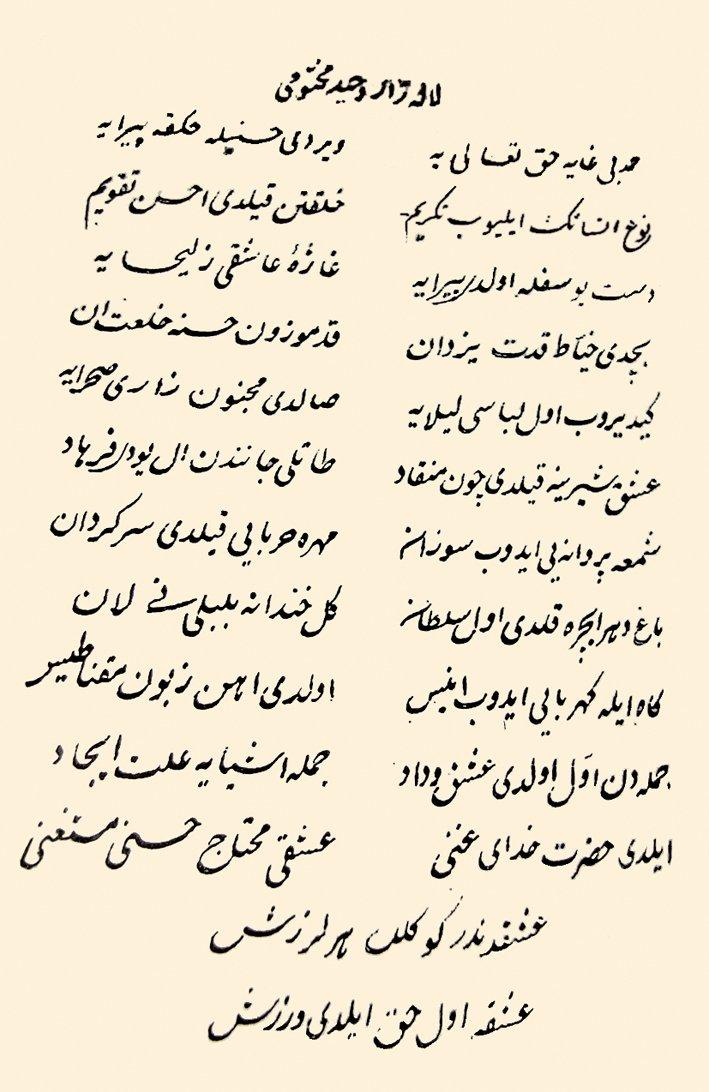 لاله زار وحید مختومی
حمد بی غایه حق تعالی یه ویردی حسنیله حلقه پیرایه
نوع انسانک ایلیوب تکریم خلقتن قیلدی احسن تقویم
دست یوسفله اولدر پیرایه غازۀ عاشقی زلیحایه
بچدی خیاط قدت یزدان قد موزون حسنه خلعت ان
کیدیروب اول لباسی لیلایه صالدی مجنون زاری صحرایه
عشق شیرینه قیلدی چون منقاد طاتلی جانندن ال یودر فرهاد
شمعه پروانه یی ایدوب سوزان مهره حربایی قیلدی سرکردان
باغ دهر ایچره قلدی اول سلطان کل خندانه بلبلی لان
کاه ایله کهربایی ایدوب انیس اولدی اهن زبون مقناطیس
جمله دن اول اولدی عشق وداد جمله اشیایه علت ایجاد
ایلدی حضرت خدای غنی عشقی محتاج حسنی مستغنی
عشقدندر کو کلک هر لرزش
عشقه اول حق ایلدی ورزش